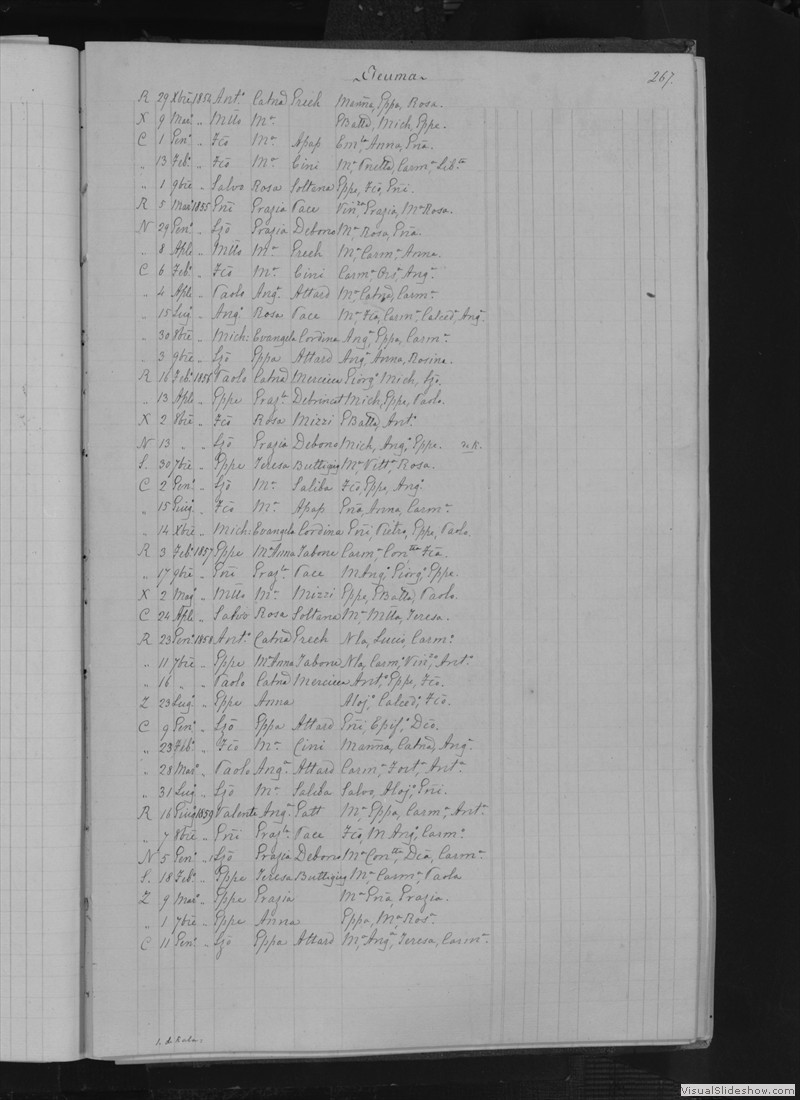 267.
R 29 Xbre 1854 Ant.o Catna Grech Marina, Gppa, Rosa.
X 9 Mar.o „ Mtto M.a Gbatta, Mich, Gppe.
C 1 Gen.o „ Fco M.a Apap Em.la, Anna, Gna.
„ 13 Feb.o „ Fco M.a Cini M.a Carm.a
„ 1 9bre „ Salvo Rosa Soltana Gppe, Fco, Gni.
R 5 Mar.o 1855 Gni Grazia Pace Vin.za, Grazia, M.a Rosa.
N 29 Gen.o „ Ljo Grazia Debono M.a Rosa, Gna.
„ 8 Aple „ Mtto M.a Grech M.a, Carm.a, Anna.
C 6 Feb.o „ Fco M.a Cini Carm.a Ors.a, Ang.a
„ 4 Aple „ Paolo Ang.a Attard M.a, Catna, Carm.a
„ 15 Lug.o „ Ang.o Rosa Pace M.a, Fca, Carm.a, Calced.a, Ang.a
„ 30 8bre „ Mich: Evangela Cordina Ang.o, Gppa, Carm.a
„ 3 9bre „ Ljo Gppa Attard Ang.a, Anna, Rosina.
R 16 Feb.o 1856 Paolo Catna Mercieca Giorg.o Mich, Ljo.
„ 13 Aple „ Gppe Graz.la Debrincat Mich, Gppe, Paolo.
X 2 8bre „ Fco Rosa Mizzi Gbatta, Ant.o
N 13 „ „ Ljo Grazia Debono Mich, Ang.o, Gppe.
S. 30 7bre „ Gppe Teresa Buttigieg M.a, Vitt.a, Rosa.
C 2 Gen.o „ Ljo M.a Saliba Fco, Gppe, Ang.o
„ 15 Giug.o „ Fco M.a Apap Gna, Anna, Carm.a
„ 14 Xbre „ Mich: Evangela Cordina Gni, Pietro, Gppe, Paolo.
R 3 Feb.o 1857 Gppe M.a Anna Tabone Carm.a Con.tta Fca.
„ 17 9bre „ Gni Graz.la Pace M Ang.o, Giorg.o, Gppe.
X 2 Mag.o „ Mtto M.a Mizzi Gppe, Gbatta, Paolo.
C 24 Aple „ Salvo Rosa Soltana M.a, Mtta, Teresa.
R 23 Gen.o 1858 Ant.o Catna Grech Nla, Luis, Carm.o
„ 11 7bre „ Gppe M.a Anna Tabone Nla, Carm.o, Vin.zo, Ant.o
„ 16 „ „ Paolo Catna Mercieca Ant.o, Gppe, Fco.
Z 23 Lug.o „ Gppe Anna Aloj.o Calced.o, Fco.
C 9 Gen.o „ Ljo Gppa Attard Gni, Epif.o, Dco.
„ 23 Feb.o „ Fco M.a Cini Marina, Catna, Ang.a
„ 28 Mar.o „ Paolo Ang.a Attard Carm.a, Fort.a, Ant.a
„ 31 Lug.o „ Ljo M.a Saliba Salvo, Aloj.o, Gni.
R 16 Giug.o 1859 Valente Ang.a Gatt M.a, Gppa, Carm.a, Ant.a
„ 7 8bre „ Gni Graz.la Pace Fco, M Ang.o, Carm.o
N 5 Gen.o „ Ljo Grazia Debono M.a Con.tta, Dca, Carm.a
S. 18 Feb.o „ Gppe Teresa Buttigieg M.a Carm.a, Paola
Z 9 Mar.o „ Gppe Grazia M.a Gna, Grazia.
„ 1 7bre „ Gppe Anna Gppa, M.a, Ros.a
C 11 Gen.o „ Ljo Gppa Attard M.a, Ang.a, Teresa, Carm.a
VisualSlideshow.com